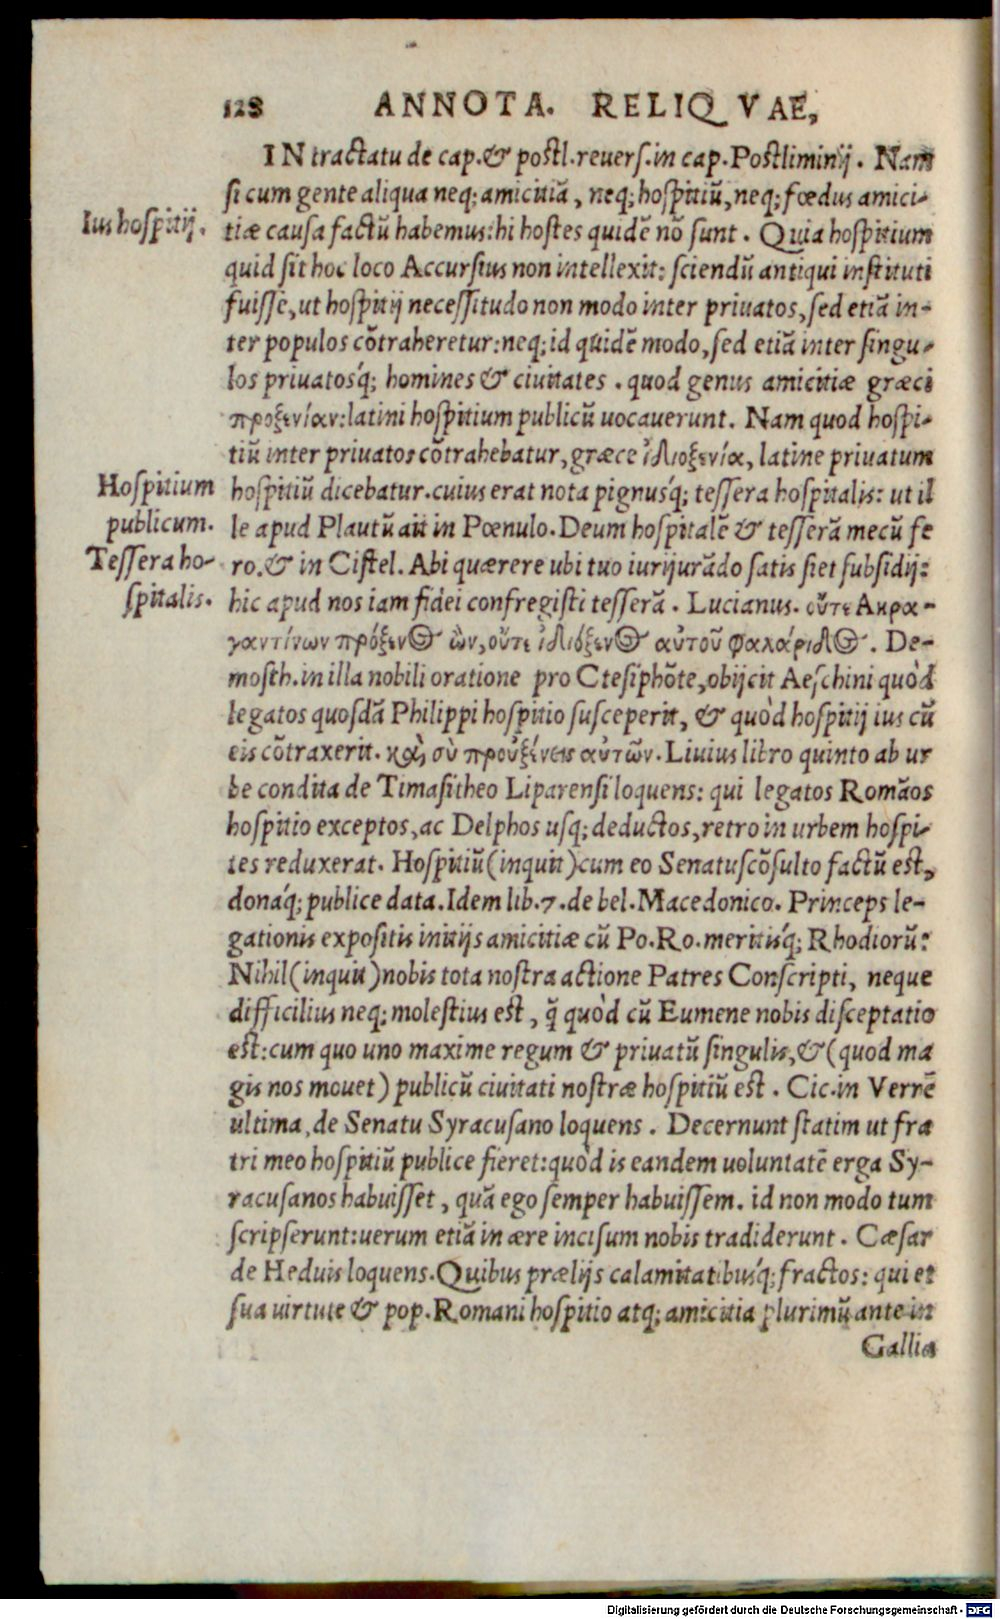 128 ANNOTA. RELIQVAE,
IN tractatu de cap. & postl. reuers. in cap. Postliminij. Nam
si cum gente aliqua neq; amicitiã, neq; hospitiũ, neq; fœdus amici-
Ius hospitij.
tiæ causa factũ habemus: hi hostes quidẽ nõ sunt. Quia hospitium
quid sit hoc loco Accursius non intellexit: sciendũ antiqui instituti
fuisse, ut hospitij necessitudo non modo inter priuatos, sed etiã in-
ter populos cõtraheretur: neq; id quidẽ modo, sed etiã inter singu-
los priuatosq́; homines & ciuitates. quod genus amicitiæ græci
προξενίαν: latini hospitium publicũ uocauerunt. Nam quod hospi-
tiũ inter priuatos cõtrahebatur, græce ἰδιοξενία, latine priuatum
Hospitium
publicum.
Tessera ho-
spitalis.
hospitiũ dicebatur. cuius erat nota pignusq́; tessera hospitalis: ut il
le apud Plautũ ait in Pœnulo. Deum hospitalẽ & tesserã mecũ fe
ro. & in Cistel. Abi quærere ubi tuo iurijurãdo satis siet subsidij:
hic apud nos iam fidei confregisti tesserã. Lucianus. οὔτε Ακρα-
γαντίνων πρόξενος ὢν, οὔτε ἰδιόξενος αὐτοῦ φαλάριδος. De-
mosth. in illa nobili oratione pro Ctesiphõte, obijcit Aeschini quòd
legatos quosdã Philippi hospitio susceperit, & quòd hospitij ius cũ
eis cõtraxerit. καὶ σὺ προὐξένεις αὐτῶν. Liuius libro quinto ab ur
be condita de Timasitheo Liparensi loquens: qui legatos Romãos
hospitio exceptos, ac Delphos usq; deductos, retro in urbem hospi-
tes reduxerat. Hospitiũ (inquit) cum eo Senatuscõsulto factũ est,
donaq́; publice data. Idem lib. 7. de bel. Macedonico. Princeps le-
gationis expositis initijs amicitiæ cũ Po. Ro. meritisq́; Rhodiorũ:
Nihil (inquit) nobis tota nostra actione Patres Conscripti, neque
difficilius neq; molestius est, q̃ quòd cũ Eumene nobis disceptatio
est: cum quo uno maxime regum & priuatũ singulis, & (quod ma
gis nos mouet) publicũ ciuitati nostræ hospitiũ est. Cic. in Verrẽ
ultima, de Senatu Syracusano loquens. Decernunt statim ut fra
tri meo hospitiũ publice fieret: quòd is eandem uoluntatẽ erga Sy-
racusanos habuisset, quã ego semper habuissem. id non modo tum
scripserunt: uerum etiã in ære incisum nobis tradiderunt. Cæsar
de Heduis loquens. Quibus prælijs calamitatibusq́; fractos: qui et
sua uirtute & pop. Romani hospitio atq; amicitia plurimũ ante in
Gallia
Digitalisierung gefördert durch die Deutsche Forschungsgemeinschaft - DFG